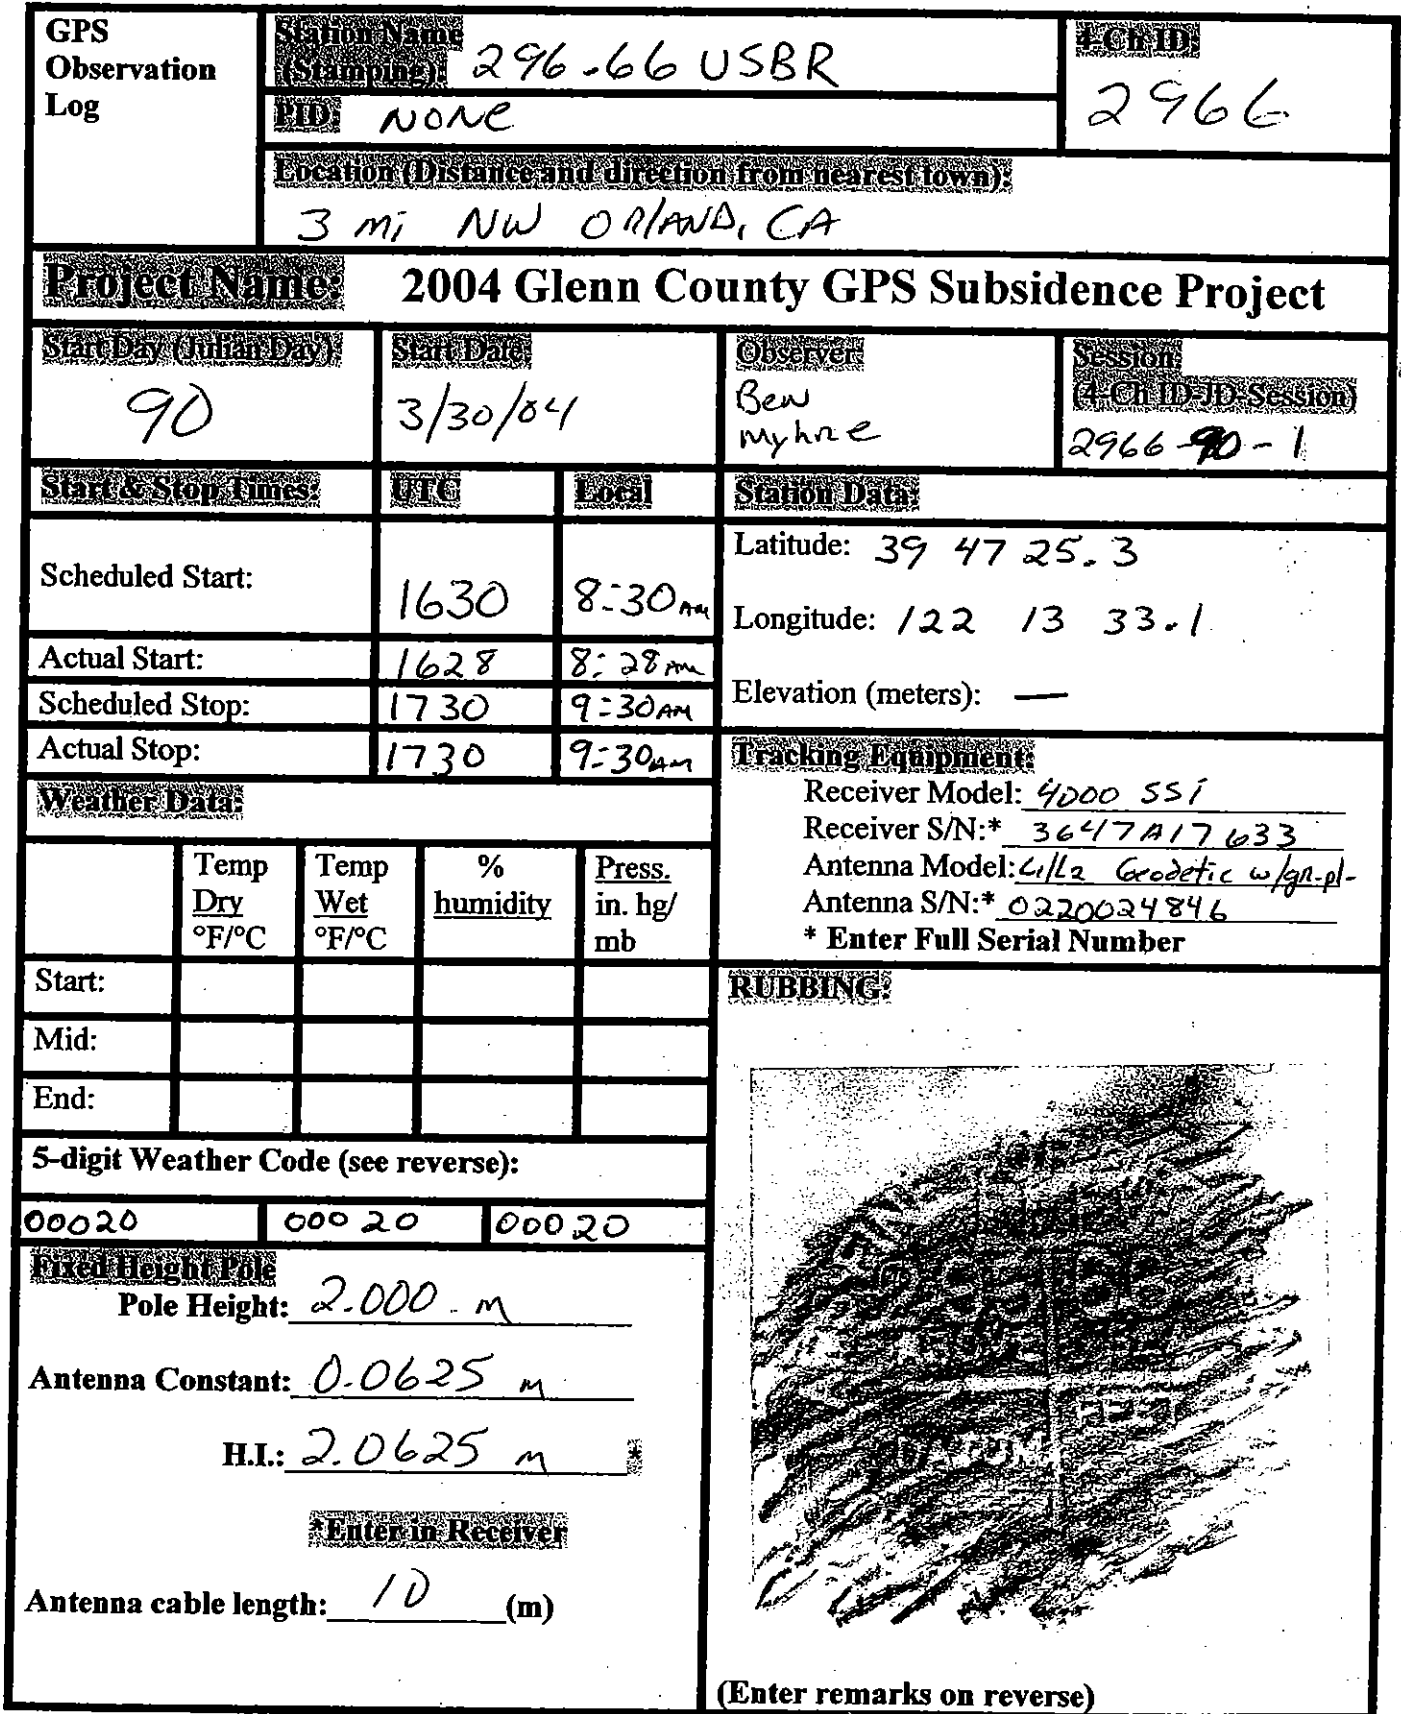 GPS
Observation
Log
Station Name
(Stamping): 296.66 USBR
PID: NONE
4-Ch ID:
2966
Location (Distance and direction from nearest town):
3 mi NW ORLAND, CA
Project Name: 2004 Glenn County GPS Subsidence Project
Start Day (Julian Day):
90
Start Date:
3/30/04
Observer:
Ben
Myhre
Session:
(4-Ch ID-JD-Session)
2966-90-1
Start & Stop Times: UTC Local
Scheduled Start: 1630 8:30 AM
Actual Start: 1628 8:28 AM
Scheduled Stop: 1730 9:30 AM
Actual Stop: 1730 9:30 AM
Station Data:
Latitude: 39 47 25.3
Longitude: 122 13 33.1
Elevation (meters): —
Tracking Equipment:
Receiver Model: 4000 SSi
Receiver S/N:* 3647A17633
Antenna Model: L1/L2 Geodetic w/gr.pl.
Antenna S/N:* 0220024846
* Enter Full Serial Number
Weather Data:
Temp
Dry
°F/°C
Temp
Wet
°F/°C
%
humidity
Press.
in. hg/
mb
Start:
Mid:
End:
5-digit Weather Code (see reverse):
00020 00020 00020
Fixed Height Pole
Pole Height: 2.000 m
Antenna Constant: 0.0625 m
H.I.: 2.0625 m *
*Enter in Receiver
Antenna cable length: 10 (m)
RUBBING:
DATUM
(Enter remarks on reverse)